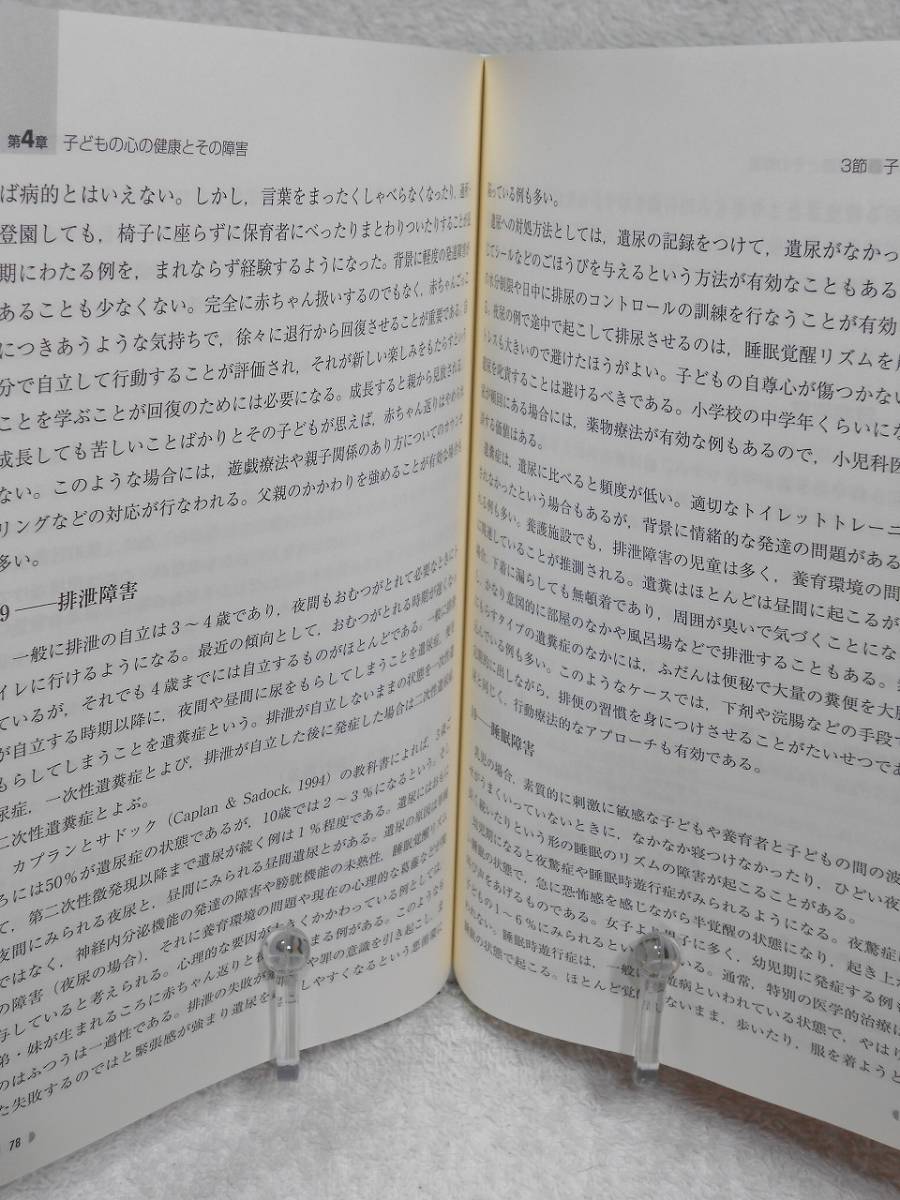 第4章 子どもの心の健康とその障害
ば病的とはいえない。しかし，言葉をまったくしゃべらなくなったり，通所・
登園しても，椅子に座らずに保育者にべったりまとわりついたりすることが
期にわたる例を，まれならず経験するようになった。背景に軽度の発達障害が
あることも少なくない。完全に赤ちゃん扱いするのでもなく，赤ちゃんごっこ
につきあうような気持ちで，徐々に退行から回復させることが重要である。自
分で自立して行動することが評価され，それが新しい楽しみをもたらすという
ことを学ぶことが回復のためには必要になる。成長すると親から見放される，
成長しても苦しいことばかりとその子どもが思えば，赤ちゃん返りはやめられ
ない。このような場合には，遊戯療法や親子関係のあり方についてのカウンセ
リングなどの対応が行なわれる。父親のかかわりを強めることが有効な場合も
多い。
9――排泄障害
一般に排泄の自立は3～4歳であり，夜間もおむつがとれて必要なときにト
イレに行けるようになる。最近の傾向として，おむつがとれる時期が遅くなっ
ているが，それでも4歳までには自立するものがほとんどである。一般に排泄
が自立する時期以降に，夜間や昼間に尿をもらしてしまうことを遺尿症，便を
もらしてしまうことを遺糞症という。排泄が自立しないままの状態を一次性遺
尿症，一次性遺糞症とよび，排泄が自立した後に発症した場合は二次性遺尿症，
二次性遺糞症とよぶ。
カプランとサドック（Caplan & Sadock, 1994）の教科書によれば，3歳ご
ろには50％が遺尿症の状態であるが，10歳では2～3％になるという。そし
て，第二次性徴発現以降まで遺尿が続く例は1％程度である。遺尿にはおもに
夜間にみられる夜尿と，昼間にみられる昼間遺尿とがある。遺尿の原因は単純
ではなく，神経内分泌機能の発達の障害や膀胱機能の未熟性，睡眠覚醒リズム
の障害（夜尿の場合），それに養育環境の問題や現在の心理的な葛藤などが関
与していると考えられる。心理的な要因が大きくかかわっている例としては，
弟・妹が生まれるころに赤ちゃん返りと まる例がある。このような
のはふつうは一過性である。排泄の失敗が や罪の意識を引き起こし，ま
た失敗するのではと緊張感が強まり遺尿を こしやすくなるという悪循環に
78
3節 子
陥っている例も多い。
遺尿への対処方法としては，遺尿の記録をつけて，遺尿がなかっ
てシールなどのごほうびを与えるという方法が有効なこともある
の水分制限や日中に排尿のコントロールの訓練を行なうことが有効
る。夜尿の例で途中で起こして排尿させるのは，睡眠覚醒リズムを
トレスも大きいので避けたほうがよい。子どもの自尊心が傷つかない
遺尿を叱責することは避けるべきである。小学校の中学年くらいにな
尿が頻回にある場合には，薬物療法が有効な例もあるので，小児科医
討する価値はある。
遺糞症は，遺尿に比べると頻度が低い。適切なトイレットトレーニ
されなかったという場合もあるが，背景に情緒的な発達の問題がある
れる例も多い。養護施設でも，排泄障害の児童は多く，養育環境の問
に関連していることが推測される。遺糞はほとんどは昼間に起こるが
場合，下着に漏らしても無頓着であり，周囲が臭いで気づくことにな
，かなり意図的に部屋のなかや風呂場などで排泄することもある。
にもらすタイプの遺糞症のなかには，ふだんは便秘で大量の糞便を大腸
んでいる例も多い。このようなケースでは，下剤や浣腸などの手段で
定期的に出しながら，排便の習慣を身につけさせることがたいせつであ
尿と同じく，行動療法的なアプローチも有効である。
10――睡眠障害
乳児の場合，素質的に刺激に敏感な子どもや養育者と子どもの間の波
せがうまくいっていないときに，なかなか寝つけなかったり，ひどい夜
く続いたりという形の睡眠のリズムの障害が起こることがある。
幼児期になると夜驚症や睡眠時遊行症がみられるようになる。夜驚症は
い睡眠の状態で，急に恐怖感を感じながら半覚醒の状態になり，起き上が
叫び声をあげるものである。女子より男子に多く，幼児期に発症する例も
子どもの1～6％にみられるとい いる。通常，特別の医学的治療は
わない。睡眠時遊行症は，一般に 遊病といわれている状態で，やはり
睡眠の状態で起こる。ほとんど覚 ないまま，歩いたり，服を着ようと